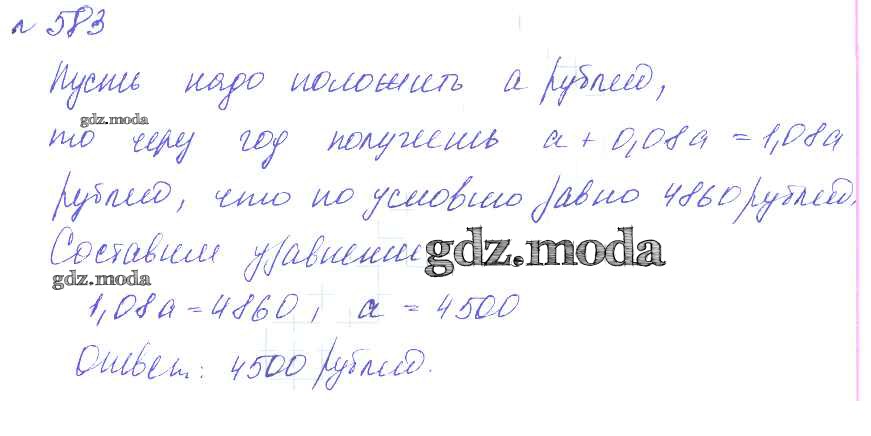 № 583
Пусть надо положить a рублей,
gdz.moda
то через год получишь a + 0,08a = 1,08a
рублей, что по условию равно 4860 рублей.
Составим уравнение
gdz.moda
gdz.moda
1,08a = 4860, a = 4500
Ответ: 4500 рублей.